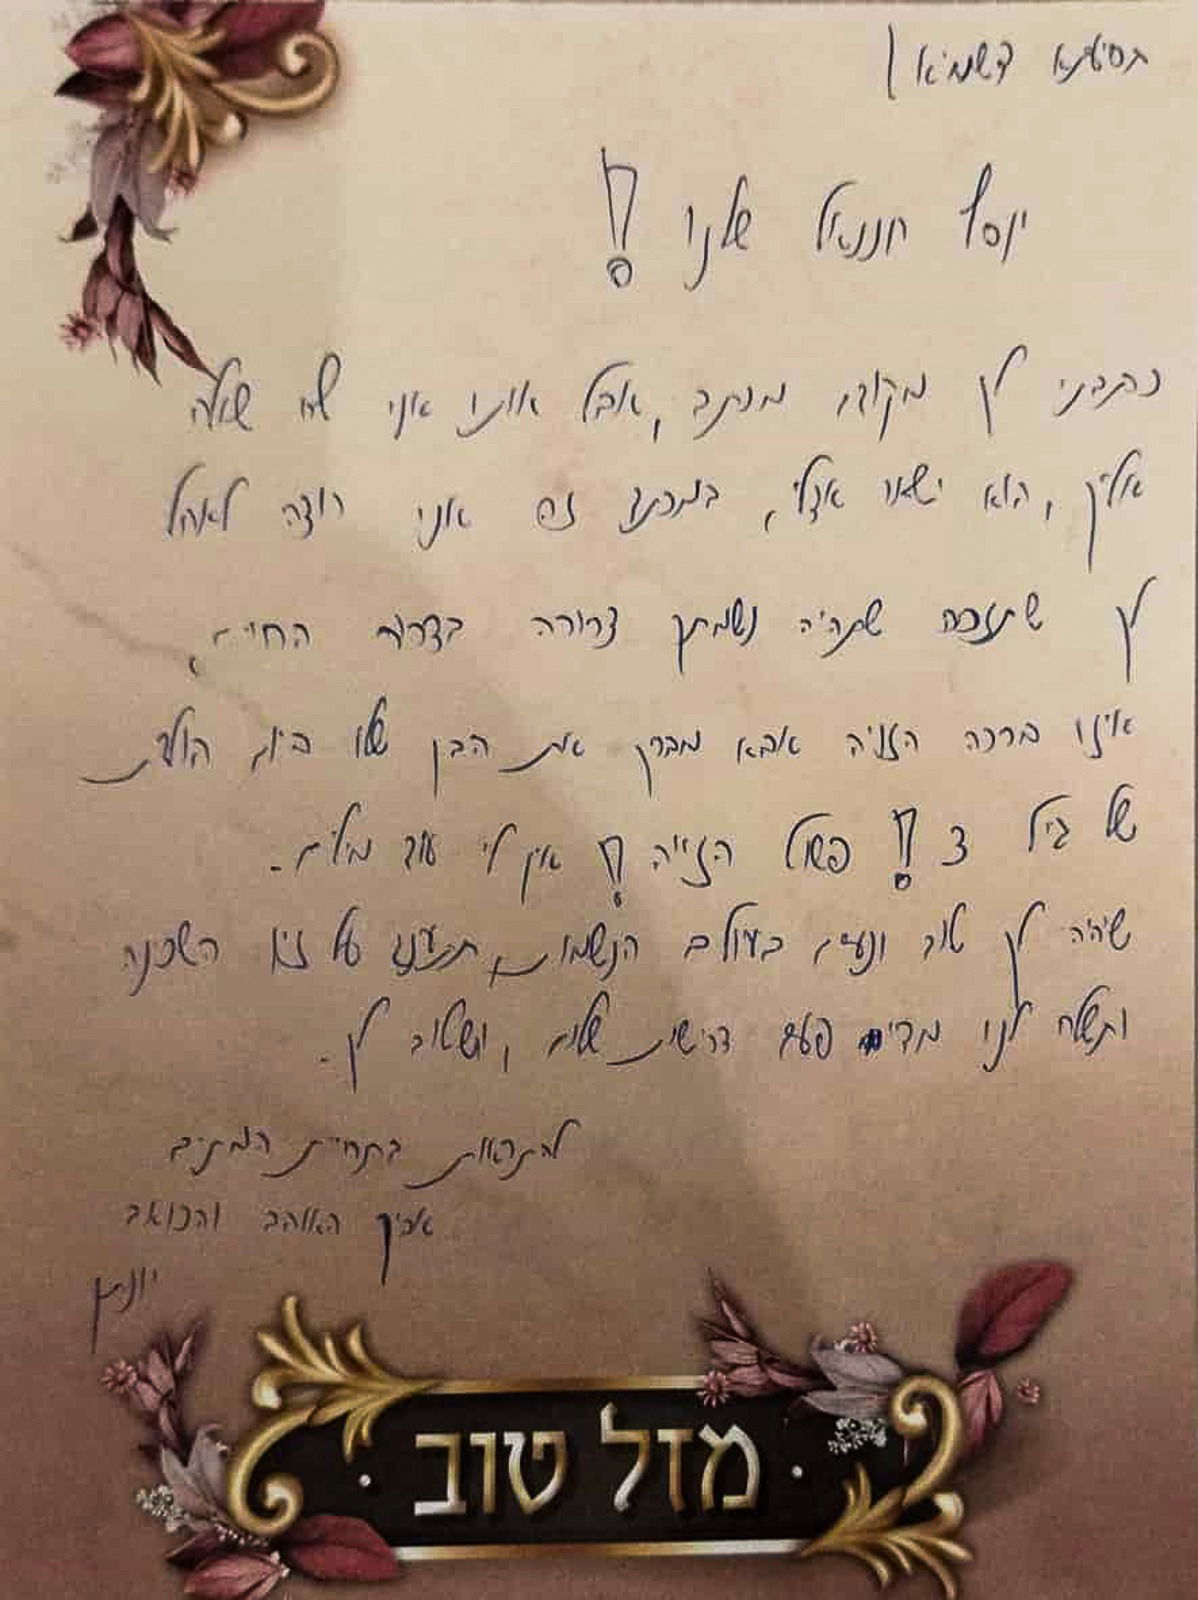 בסיעתא דשמיא!
יוסף חננאל שלנו!
כתבתי לך מקודם מכתב, אבל אותו אני לא שולח
אליך, הוא ישאר אצלי, במכתב זה אני רוצה לאחל
לך שתזכה שתהיה נשמתך צרורה בצרור החיים,
איזו ברכה הזויה אבא מברך את הבן שלו ביום הולדת
של גיל 3! פשוט הזייה! אין לי עוד מילים.
שיהיה לך טוב ונעים בעולם הנשמות, תתענג על זיו השכינה
ותשלח לנו מדי פעם דרישת שלום, ושטוב לך.
להתראות בתחיית המתים
אביך האוהב והכואב
יונתן
· מזל טוב ·